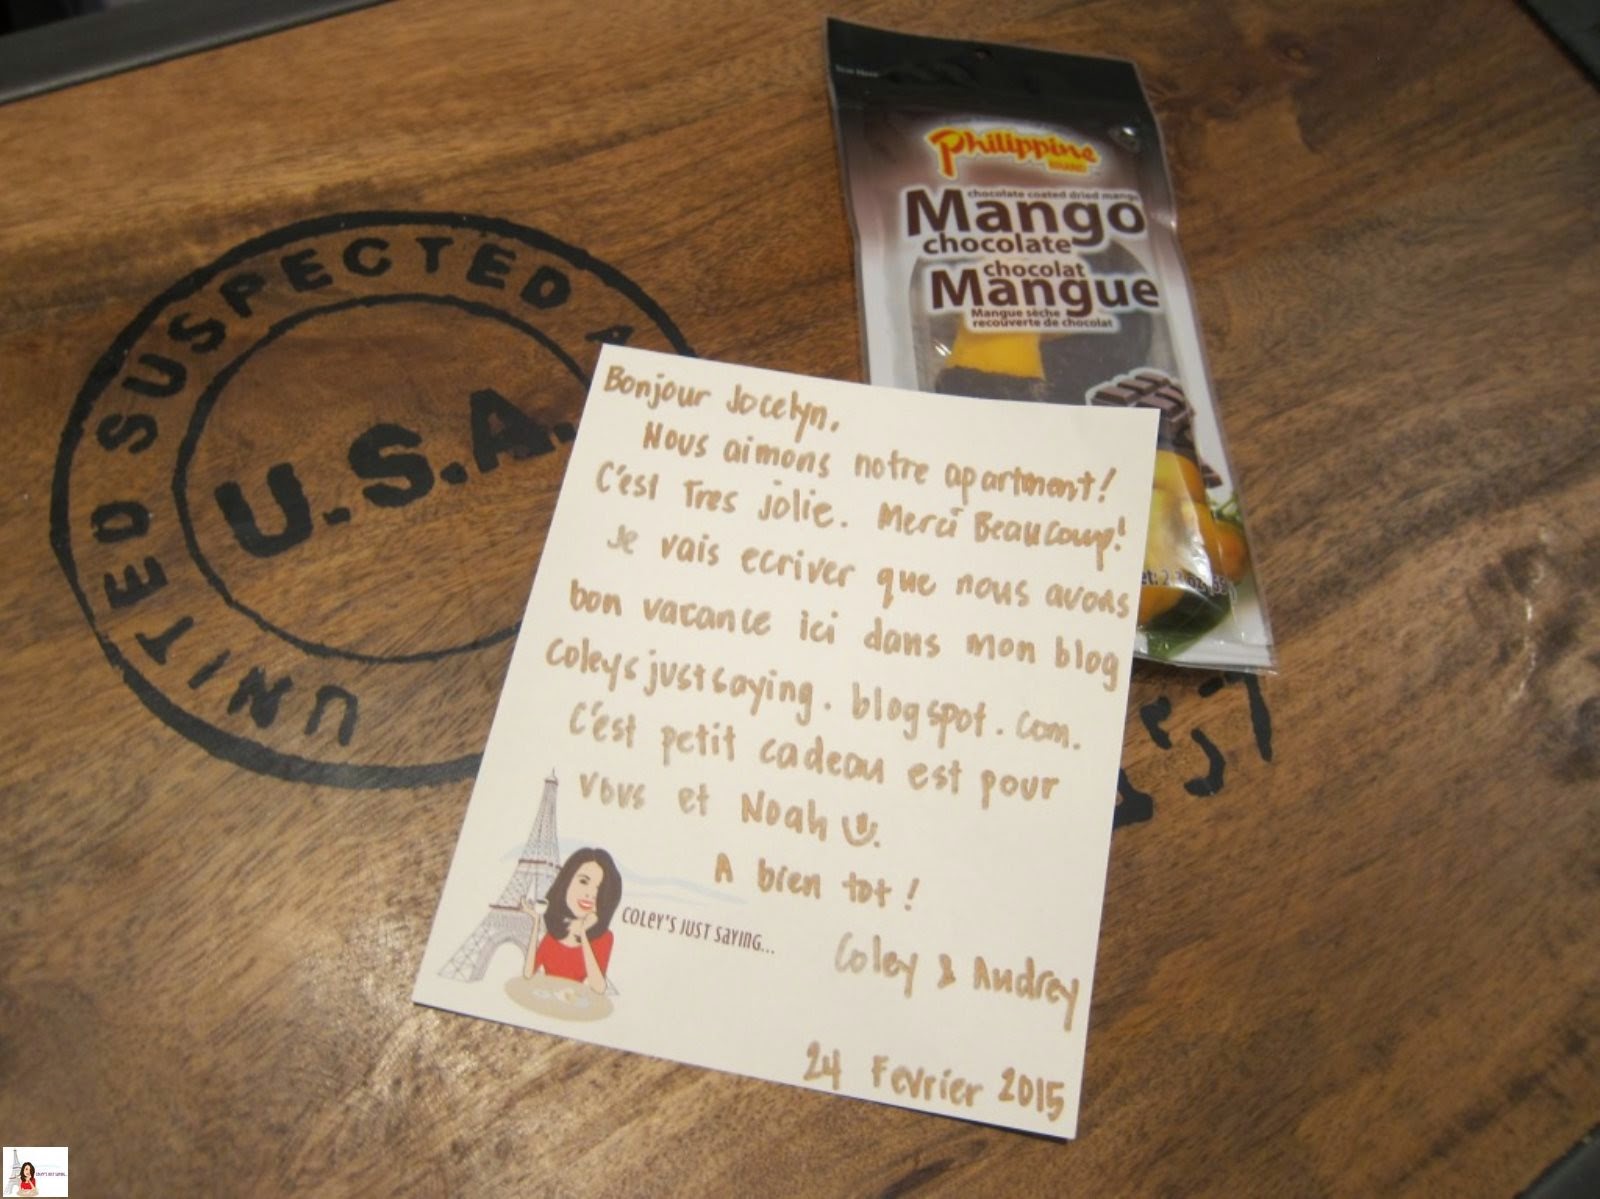 Your Heart
Philippine
BRAND
chocolate coated dried mango
Mango
chocolate
chocolat
Mangue
Mangue sèche
recouverte de chocolat
UNITED SUSPECTED
U.S.A.
Bonjour Jocelyn,
Nous aimons notre apartment!
C'est Tres jolie. Merci Beaucoup!
Je vais ecriver que nous avons
bon vacance ici dans mon blog
coleysjustsaying.blogspot.com.
C'est petit cadeau est pour
vous et Noah
A bien tot!
Coley & Audrey
24 Fevrier 2015
COLEY'S JUST SAYING...
COLEY'S JUST SAYING...